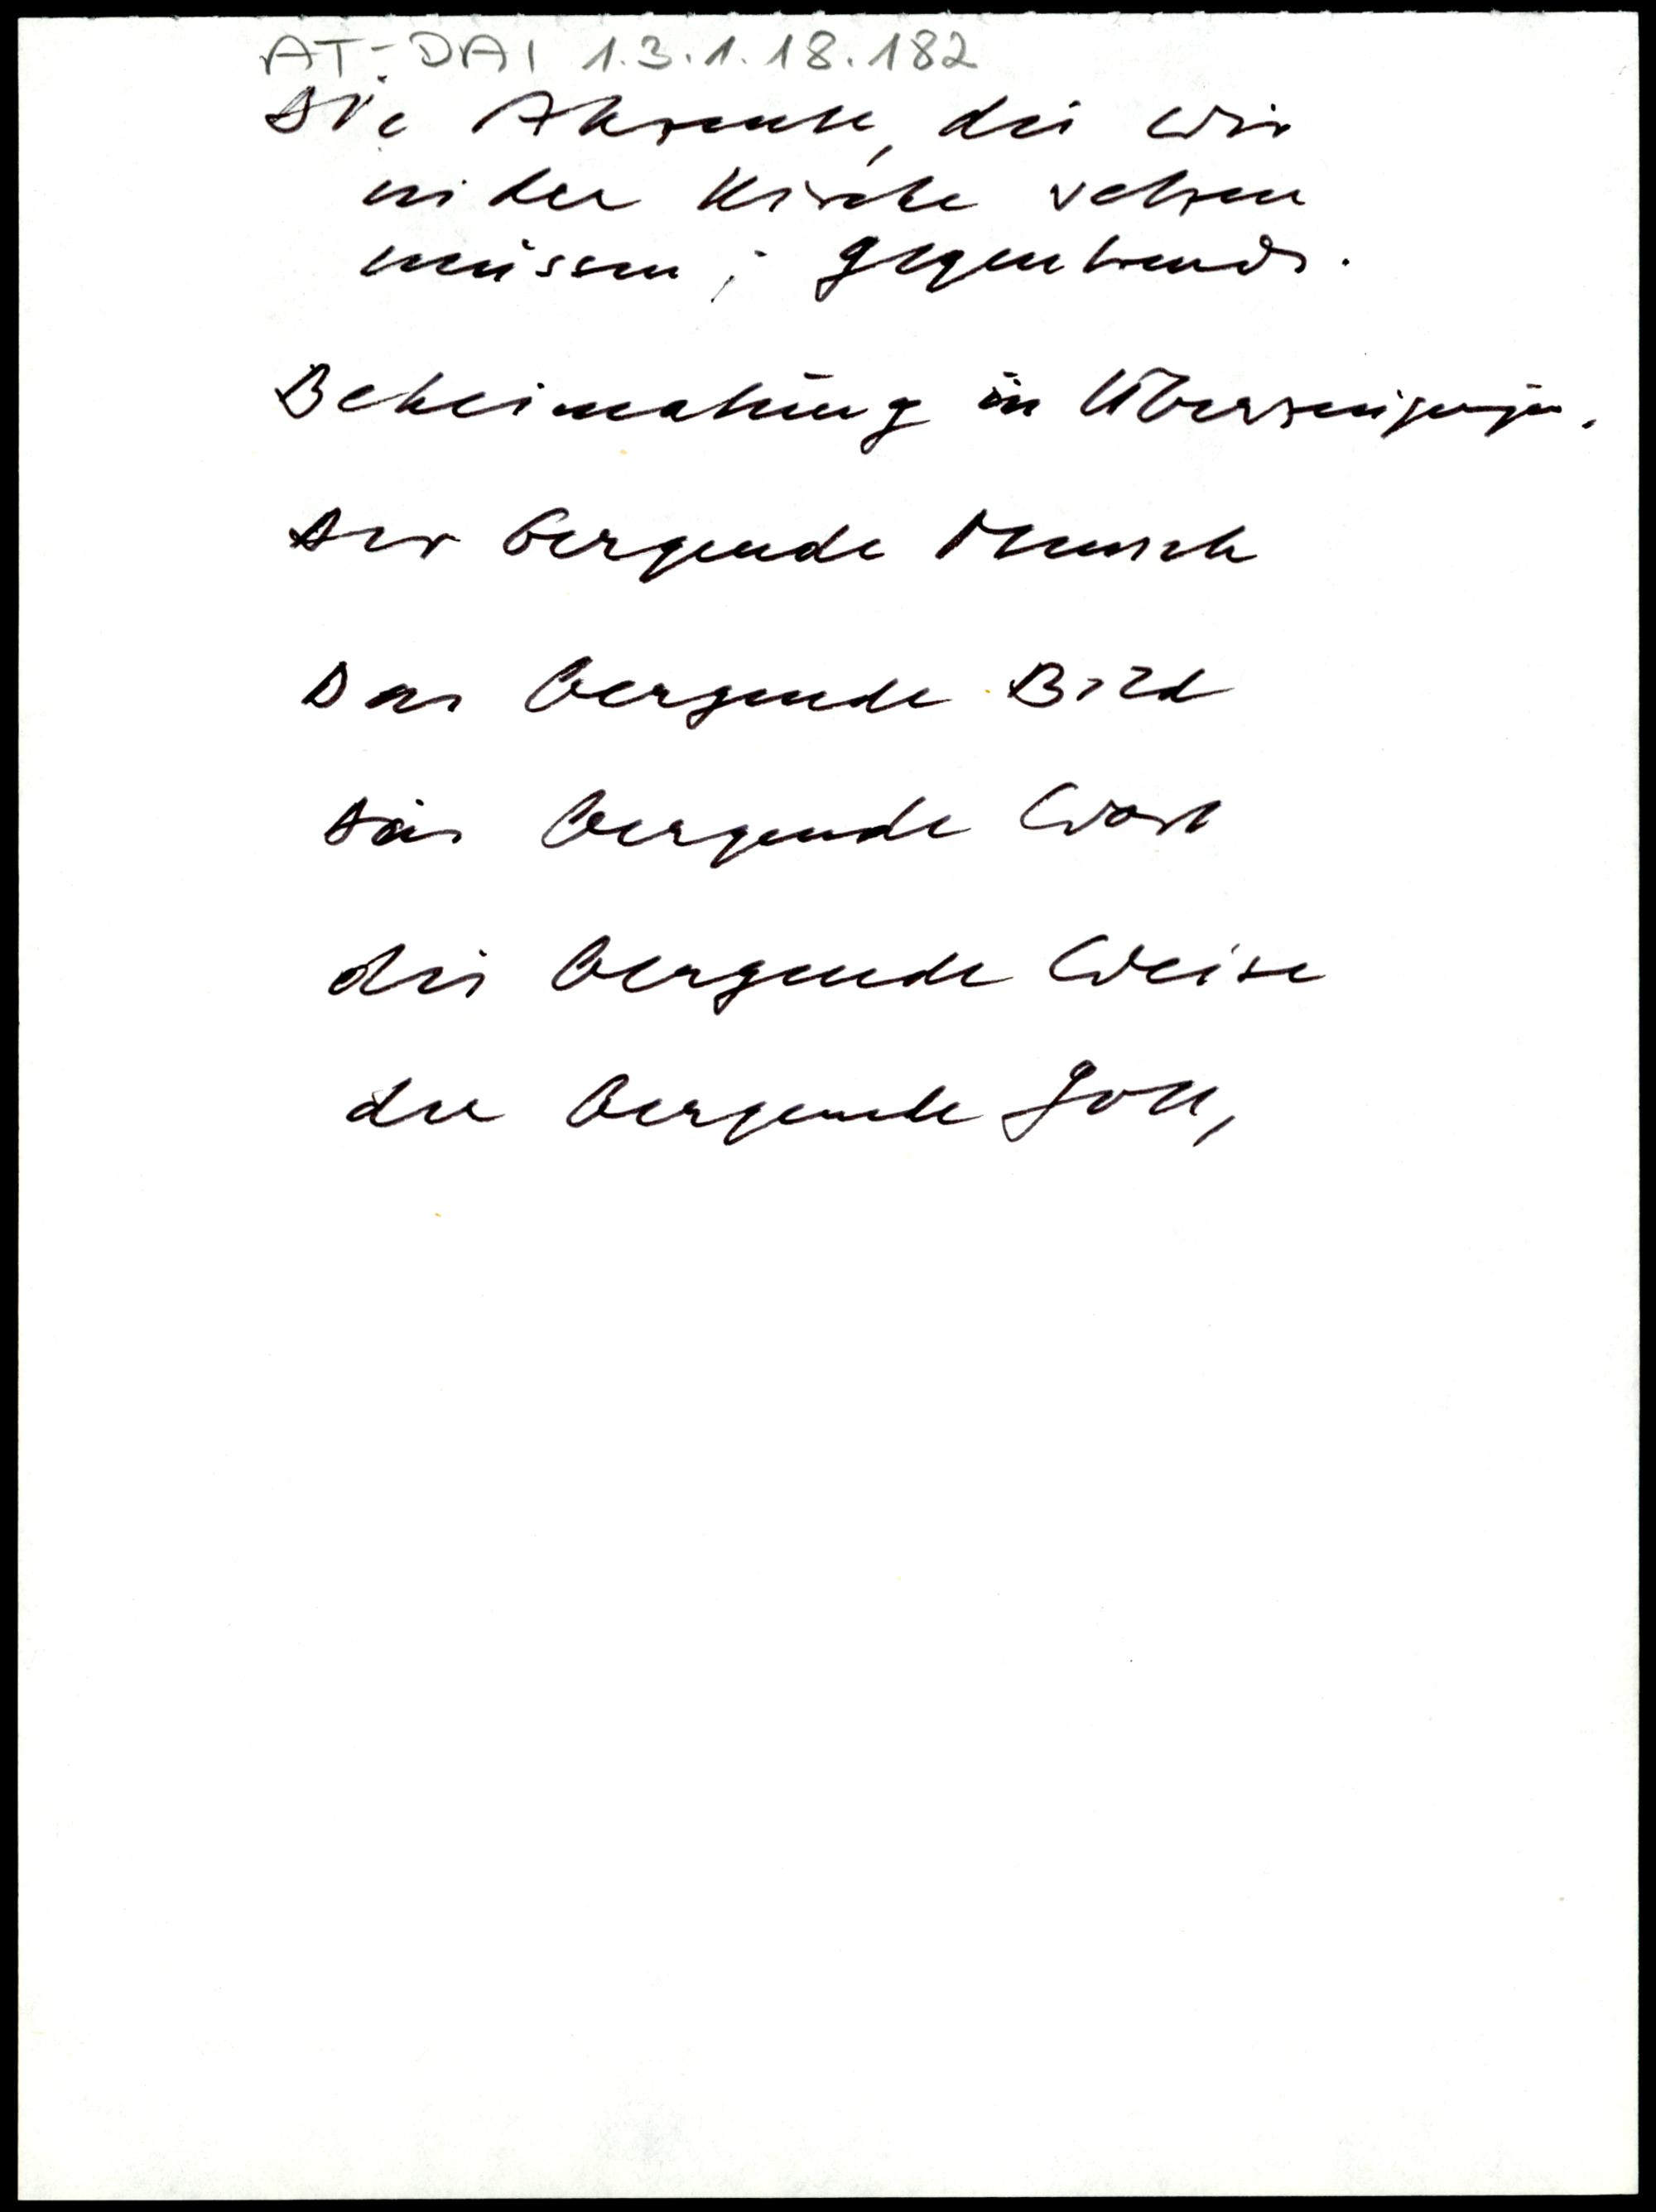 AT-DAI 1.3.1.18.182
Die Akzente, die wir
in der Kirche setzen
müssen;
Beheimatung in Überzeugungen.
Der bergende Mensch
Das bergende Bild
Das bergende Wort
die bergende Weise
der bergende Gott,